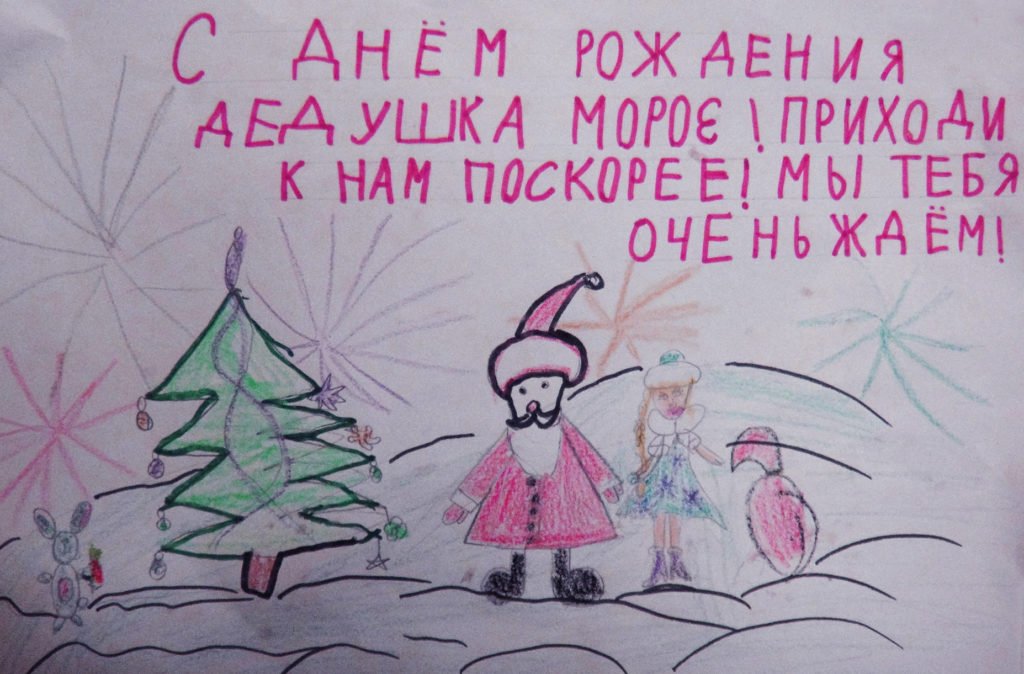 С ДНЁМ РОЖДЕНИЯ
ДЕДУШКА МОРОЄ! ПРИХОДИ
К НАМ ПОСКОРЕЕ! МЫ ТЕБЯ
ОЧЕНЬ ЖДАЁМ!